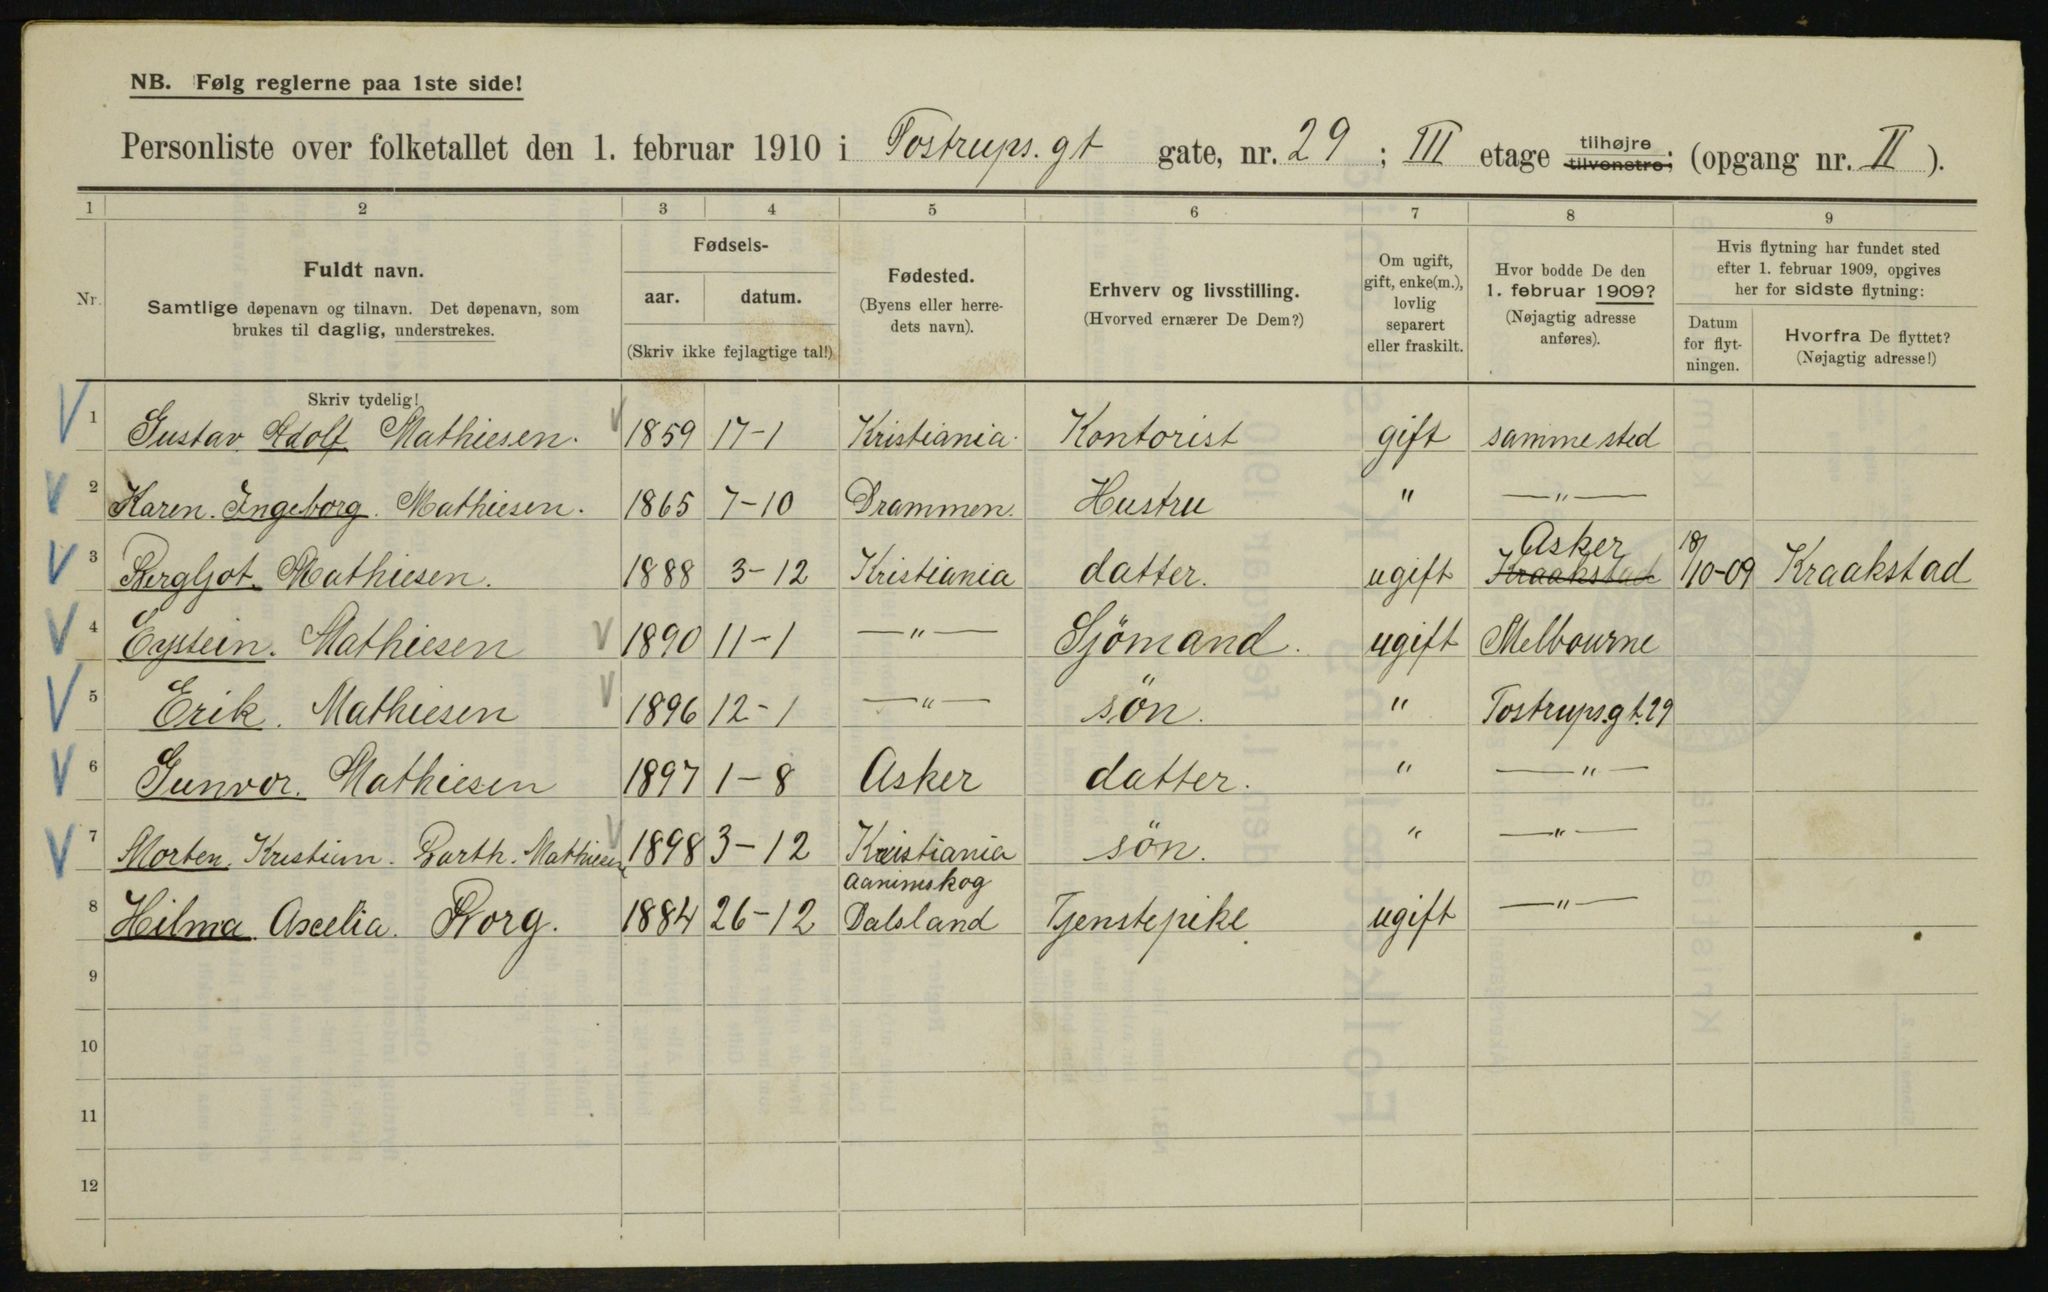 NB. Følg reglerne paa 1ste side!
Personliste over folketallet den 1. februar 1910 i Tostrups. gt gate, nr. 29 ; III etage tilhøjre tilvenstre; (opgang nr. II ).
1 2 3 4 5 6 7 8 9
Nr.
Fuldt navn.
Samtlige døpenavn og tilnavn. Det døpenavn, som
brukes til daglig, understrekes.
Fødsels-
aar. datum.
(Skriv ikke fejlagtige tal!)
Fødested.
(Byens eller herre-
dets navn).
Erhverv og livsstilling.
(Hvorved ernærer De Dem?)
Om ugift,
gift, enke(m.),
lovlig
separert
eller fraskilt.
Hvor bodde De den
1. februar 1909?
(Nøjagtig adresse
anføres).
Hvis flytning har fundet sted
efter 1. februar 1909, opgives
her for sidste flytning:
Datum
for flyt-
ningen.
Hvorfra De flyttet?
(Nøjagtig adresse!)
Skriv tydelig!
1 Gustav Adolf Mathiesen. 1859 17-1 Kristiania. Kontorist gift samme sted
2 Karen. Ingeborg. Mathiesen. 1865 7-10 Drammen. Hustru " —"—
3 Bergljot. Mathiesen. 1888 3-12 Kristiania datter. ugift Asker Kraakstad 18/10-09 Kraakstad
4 Eystein. Mathiesen 1890 11-1 —"— Sjömand. ugift Melbourne
5 Erik. Mathiesen 1896 12-1 —"— sön. " Tostrups.gt.29
6 Gunvor. Mathiesen 1897 1-8 Asker datter. " —"—
7 Morten. Kristian. Barth. Mathiesen 1898 3-12 Kristiania sön. " —"—
8 Hilma Axelia. Borg. 1884 26-12 Aanimskog Dalsland Tjenstepike. ugift —"—
9
10
11
12